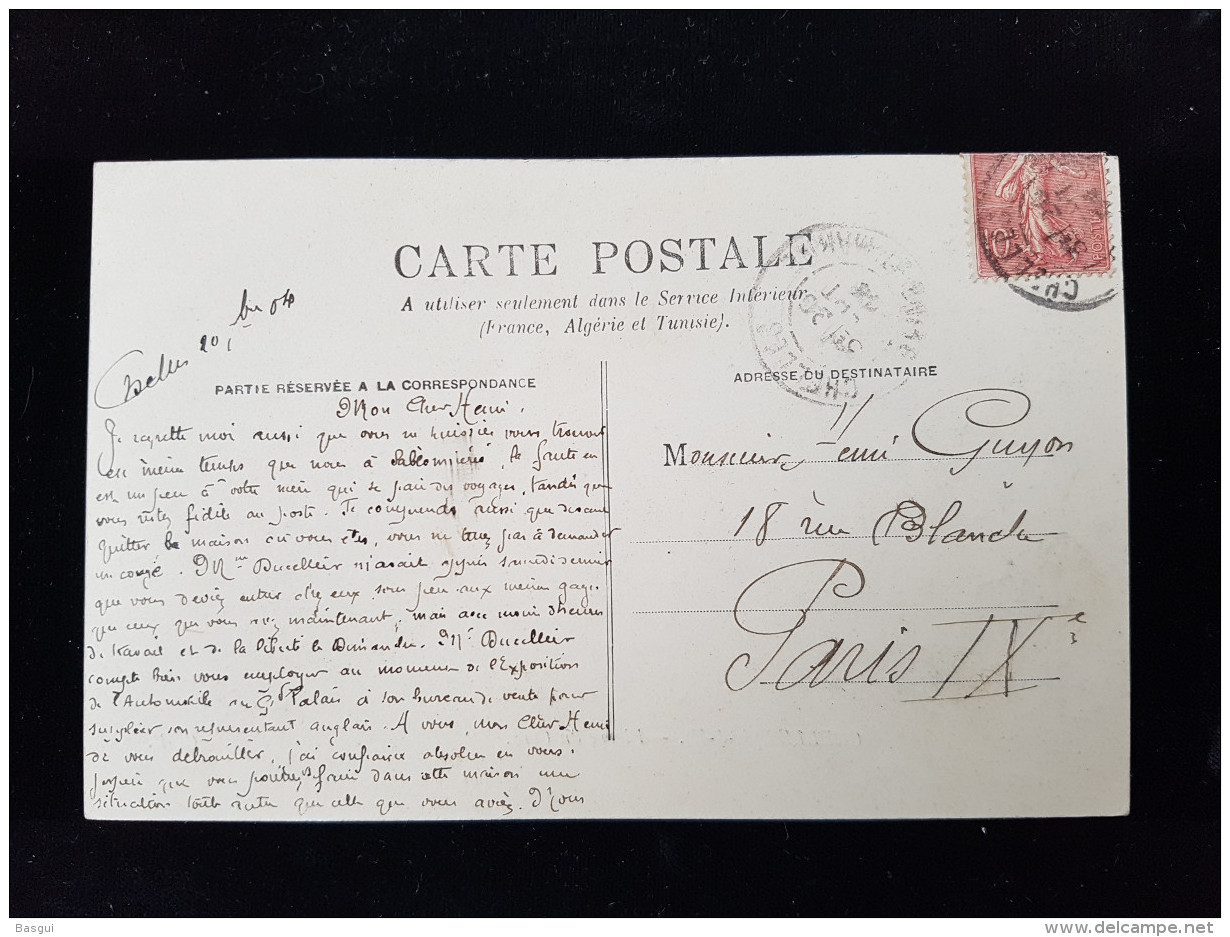 CARTE POSTALE
A utiliser seulement dans le Service Intérieur
(France, Algérie et Tunisie).
PARTIE RÉSERVÉE A LA CORRESPONDANCE
ADRESSE DU DESTINATAIRE
Mon Cher Henri.
Je regrette moi aussi que vous ne puissiez vous trouver
en même temps que nous à la faute en
est un peu à votre mère qui se paie des voyages, tandis que
vous restez fidèle au poste. Je comprends aussi que devant
quitter la maison où vous êtes, vous ne tenez pas à demander
un congé. Mme Ducellier m'avait appris samedi dernier
que vous deviez entrer chez eux sous peu aux mêmes gages
que ceux que vous avez maintenant, mais avec moins d'heures
de travail et de la liberté le Dimanche. Mr Ducellier
compte bien vous employer au moment de l'Exposition
de l'Automobile au Gd Palais à son bureau de vente pour
suppléer son représentant anglais. A vous, mon Cher Henri
de vous débrouiller, j'ai confiance absolue en vous.
que vous dans cette maison une
situation toute autre que celle que vous aviez. D'ici
Monsieur Henri Guyon
18 rue Blanche
Paris IXe
CHELLES
10
POSTES
Basgui
delcampe.net